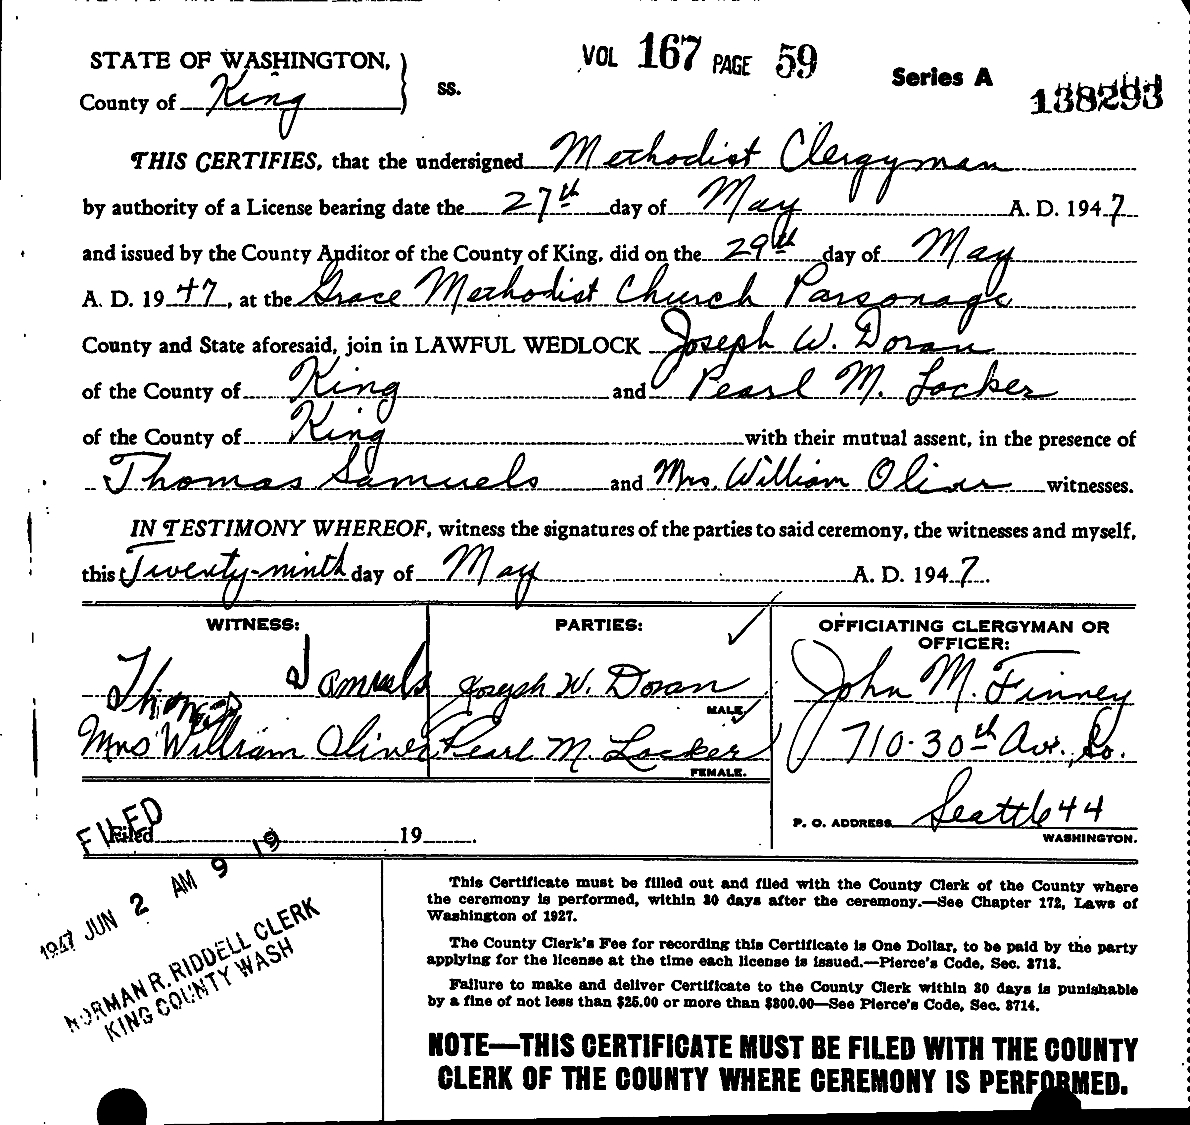 VOL 167 PAGE 59
Series A
138293
STATE OF WASHINGTON,
County of King ss.
THIS CERTIFIES, that the undersigned Methodist Clergyman
by authority of a License bearing date the 27th day of May A. D. 1947
and issued by the County Auditor of the County of King, did on the 29th day of May
A. D. 1947, at the Grace Methodist Church Parsonage
County and State aforesaid, join in LAWFUL WEDLOCK Joseph W. Doran
of the County of King and Pearl M. Locker
of the County of King with their mutual assent, in the presence of
Thomas Samuels and Mrs. William Oliver witnesses.
IN TESTIMONY WHEREOF, witness the signatures of the parties to said ceremony, the witnesses and myself,
this Twenty-ninth day of May A. D. 1947.
WITNESS:
Thomas Samuels
Mrs William Oliver
PARTIES:
Joseph W. Doran
MALE.
Pearl M. Locker
FEMALE.
OFFICIATING CLERGYMAN OR
OFFICER:
John M. Finney
710-30th Ave., So.
Seattle 44
P. O. ADDRESS
WASHINGTON.
Filed 19
FILED
1947 JUN 2 AM 9 19
NORMAN R. RIDDELL CLERK
KING COUNTY WASH
This Certificate must be filled out and filed with the County Clerk of the County where
the ceremony is performed, within 30 days after the ceremony.—See Chapter 172, Laws of
Washington of 1927.
The County Clerk's Fee for recording this Certificate is One Dollar, to be paid by the party
applying for the license at the time each license is issued.—Pierce's Code, Sec. 3713.
Failure to make and deliver Certificate to the County Clerk within 30 days is punishable
by a fine of not less than $25.00 or more than $300.00—See Pierce's Code, Sec. 3714.
NOTE—THIS CERTIFICATE MUST BE FILED WITH THE COUNTY
CLERK OF THE COUNTY WHERE CEREMONY IS PERFORMED.